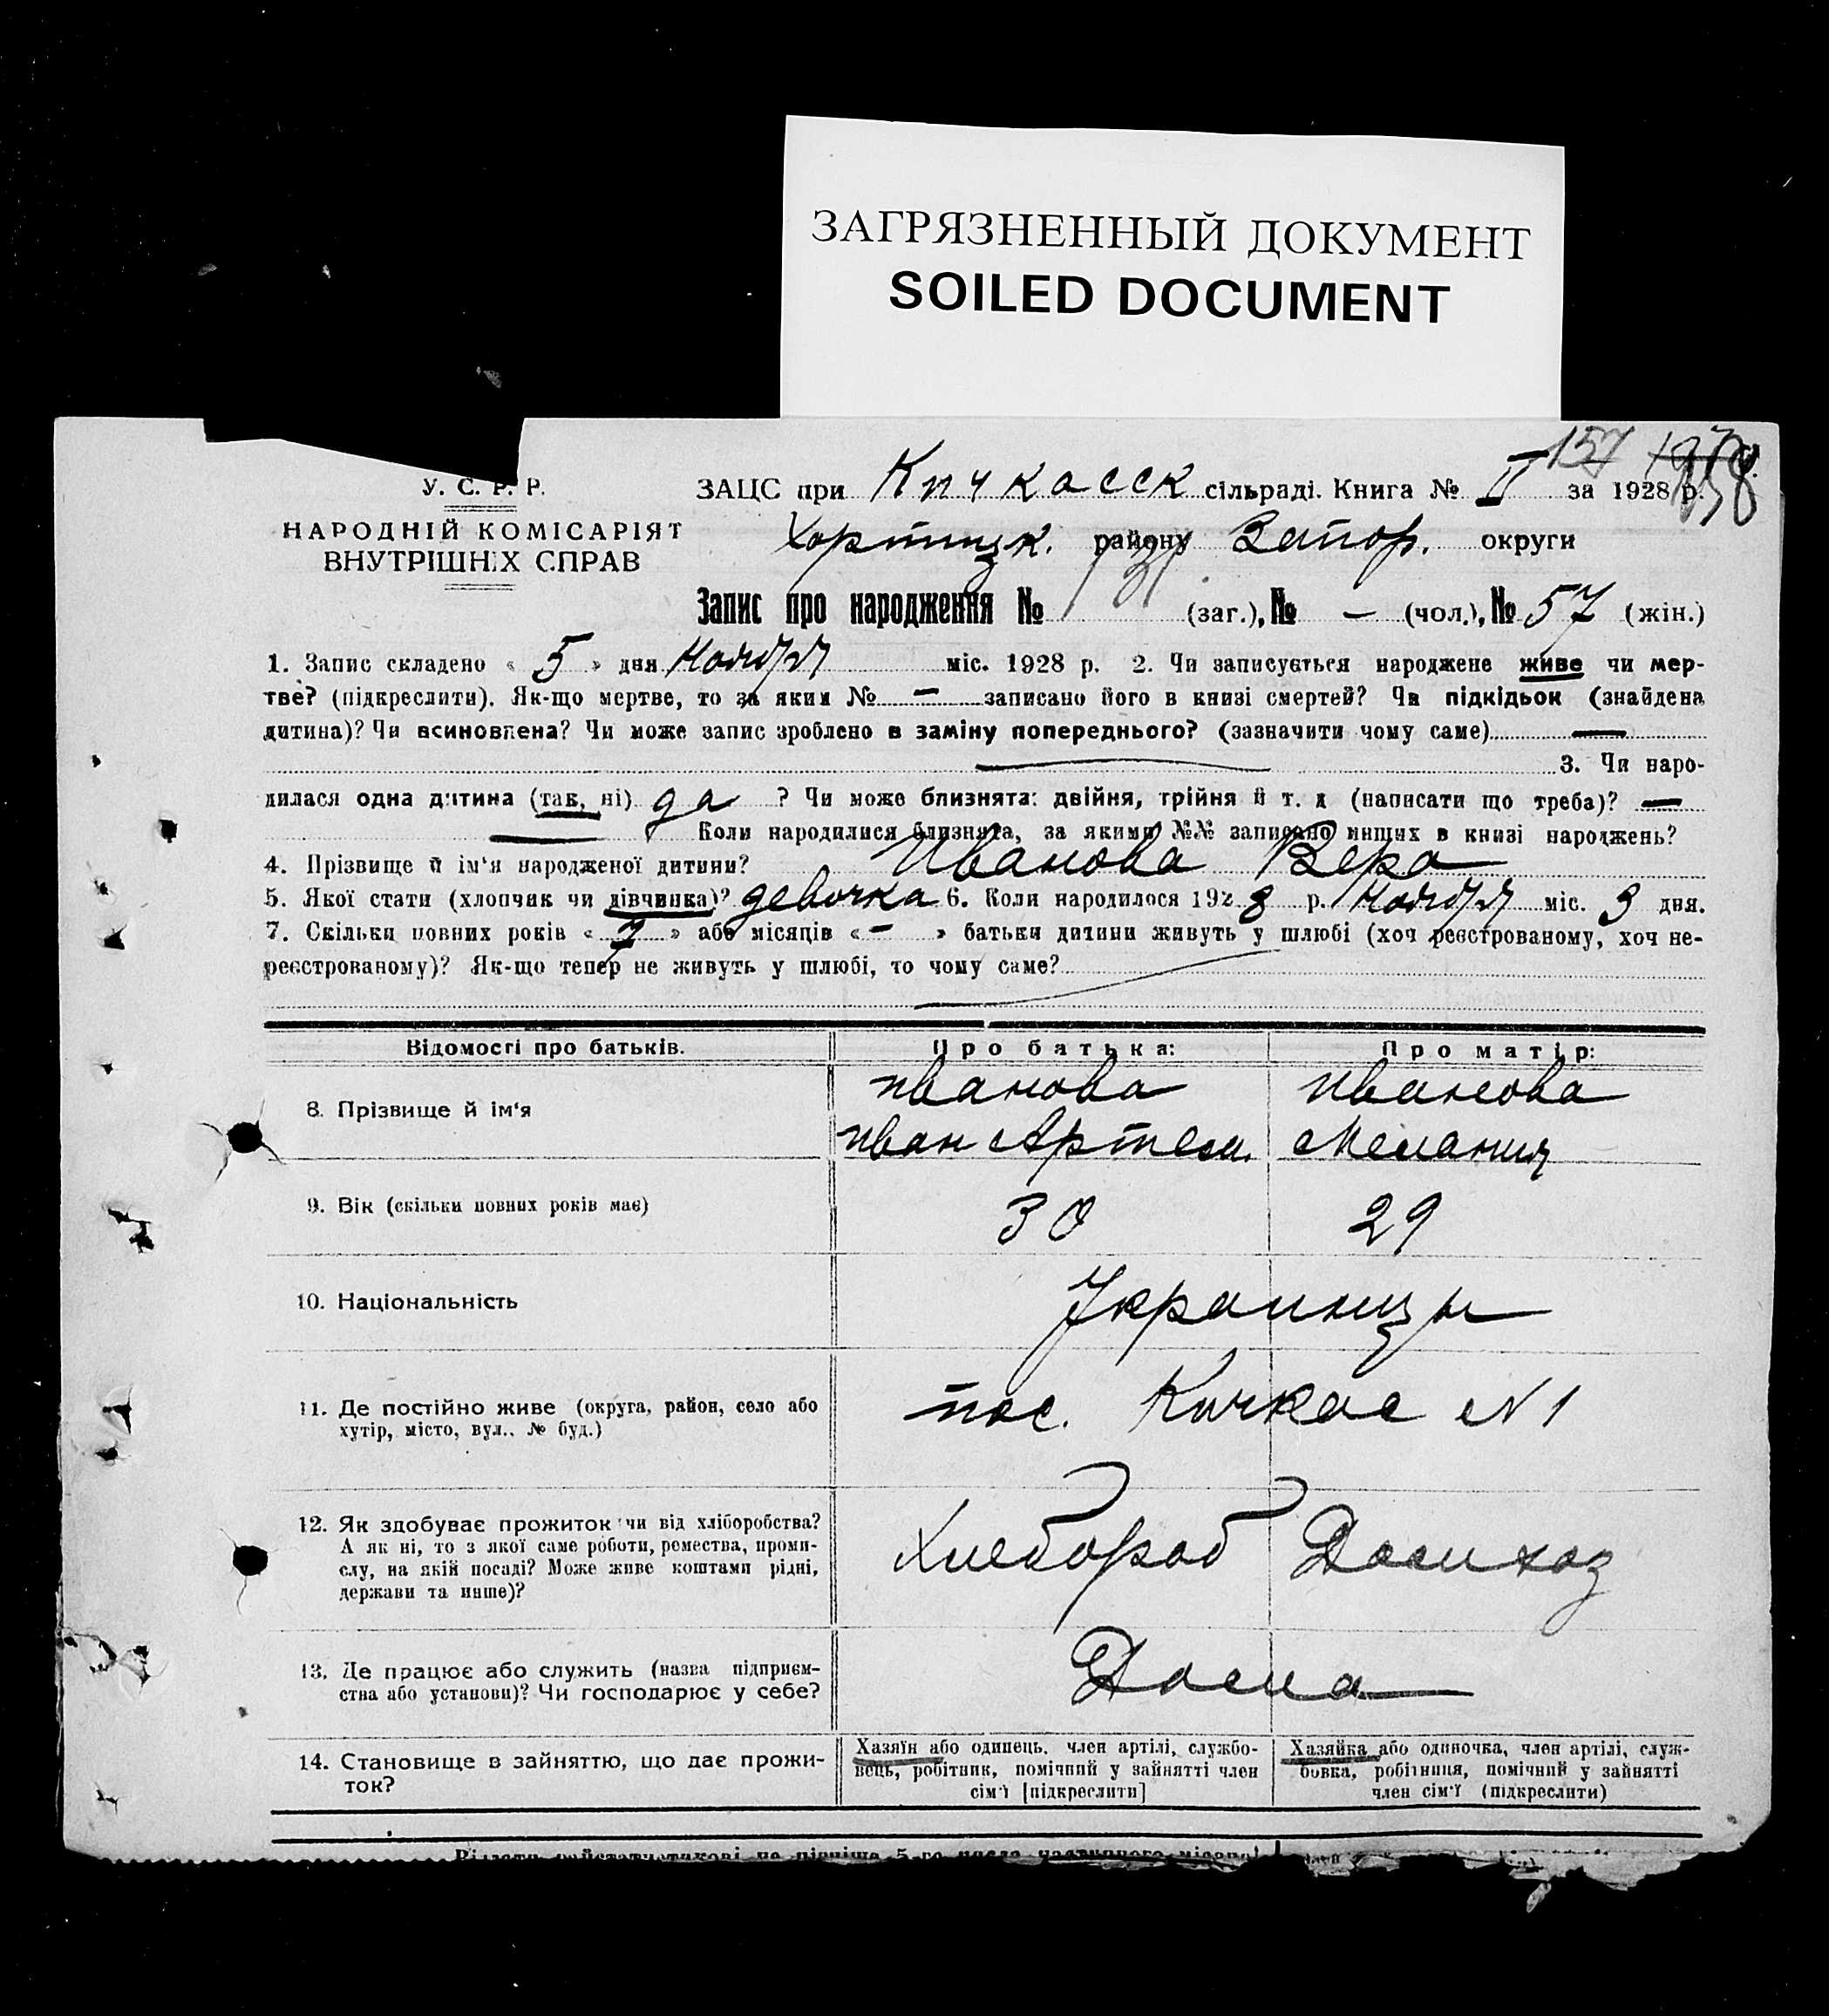 ЗАГРЯЗНЕННЫЙ ДОКУМЕНТ
SOILED DOCUMENT
157
158
У. С. Р. Р.
НАРОДНІЙ КОМІСАРІЯТ
ВНУТРІШНІХ СПРАВ
ЗАЦС при Кичкасск сільраді. Книга № II за 1928 р.
Хортицк. району Запор. округи
Запис про народження № 131 (заг.), № — (чол.), № 57 (жін.)
1. Запис складено « 5 » дня Ноября міс. 1928 р. 2. Чи записується народжене живе чи мер-
тве? (підкреслити). Як-що мертве, то за яким № — записано його в книзі смертей? Чи підкідьок (знайдена
дитина)? Чи всиновлена? Чи може запис зроблено в заміну попереднього? (зазначити чому саме) —
— 3. Чи наро-
дилася одна дитина (так, ні) да ? Чи може близнята: двійня, трійня й т. д (написати що треба)? —
— Коли народилися близнята, за якими №№ записано инших в книзі народжень?
4. Прізвище й ім'я народженої дитини? Иванова Вера
5. Якої стати (хлопчик чи дівчинка)? девочка 6. Коли народилося 1928 р. Ноября міс. 3 дня.
7. Скільки повних років « 7 » або місяців « — » батьки дитини живуть у шлюбі (хоч реєстрованому, хоч не-
реєстрованому)? Як-що тепер не живуть у шлюбі, то чому саме? —
Відомості про батьків. Про батька: Про матір:
8. Прізвище й ім'я Иванова Иванова
Иван Артем. Мелания
9. Вік (скільки повних років має) 30 29
10. Національність Украинцы
11. Де постійно живе (округа, район, село або
хутір, місто, вул., № буд.) пос. Кичкас №1
12. Як здобуває прожиток чи від хліборобства?
А як ні, то з якої саме роботи, ремества, проми-
слу, на якій посаді? Може живе коштами рідні,
держави та инше)? Хлебороб Домихоз
13. Де працює або служить (назва підприєм-
ства або установи)? Чи господарює у себе? Дома
14. Становище в зайняттю, що дає прожи-
ток?
Хазяїн або одинець, член артілі, службо-
вець, робітник, помічний у зайнятті член
сім'ї [підкреслити]
Хазяйка або одиночка, член артілі, служ-
бовка, робітниця, помічний у зайнятті
член сім'ї (підкреслити)